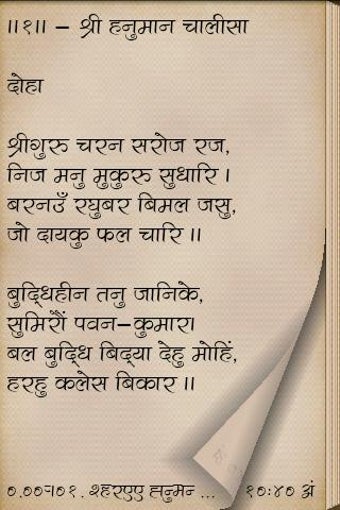 ॥१॥ - श्री हनुमान चालीसा
दोहा
श्रीगुरु चरन सरोज रज,
निज मनु मुकुरु सुधारि ।
बरनउँ रघुबर बिमल जसु,
जो दायकु फल चारि ॥
बुद्धिहीन तनु जानिके,
सुमिरौं पवन-कुमार।
बल बुद्धि बिद्या देहु मोहिं,
हरहु कलेस बिकार ॥
१०:४० अं